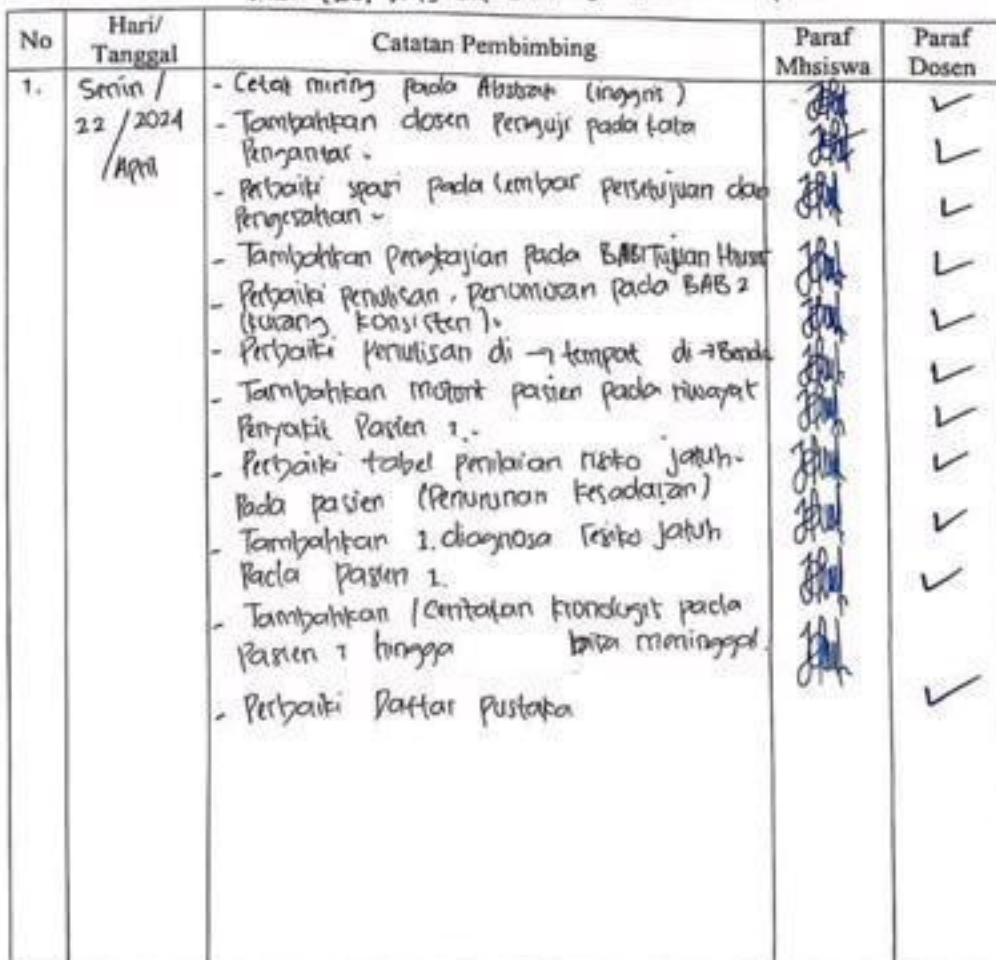 No
Hari/
Tanggal
Catatan Pembimbing
Paraf
Mhsiswa
Paraf
Dosen
1.
Senin /
22 / 2024
/ April
- Cetak miring pada Abstrak (inggris)
- Tambahkan dosen Penguji pada kata
Pengantar.
- Perbaiki spasi pada lembar persetujuan dan
Pengesahan -
- Tambahkan pengkajian pada BAB 1 Tujuan
- Perbaiki penulisan, penomoran pada BAB 2
(kurang konsisten).
- Perbaiki penulisan di → tempat di → Benda
- Tambahkan pasien pada riwayat
Penyakit Pasien 1.-
- Perbaiki tabel penilaian risiko jatuh-
Pada pasien (Penurunan kesadaran)
- Tambahkan 1. diagnosa resiko jatuh
Pada Pasien 1.
- Tambahkan / Ceritakan kronologis pada
Pasien 1 hingga bisa meninggal.
- Perbaiki Daftar pustaka